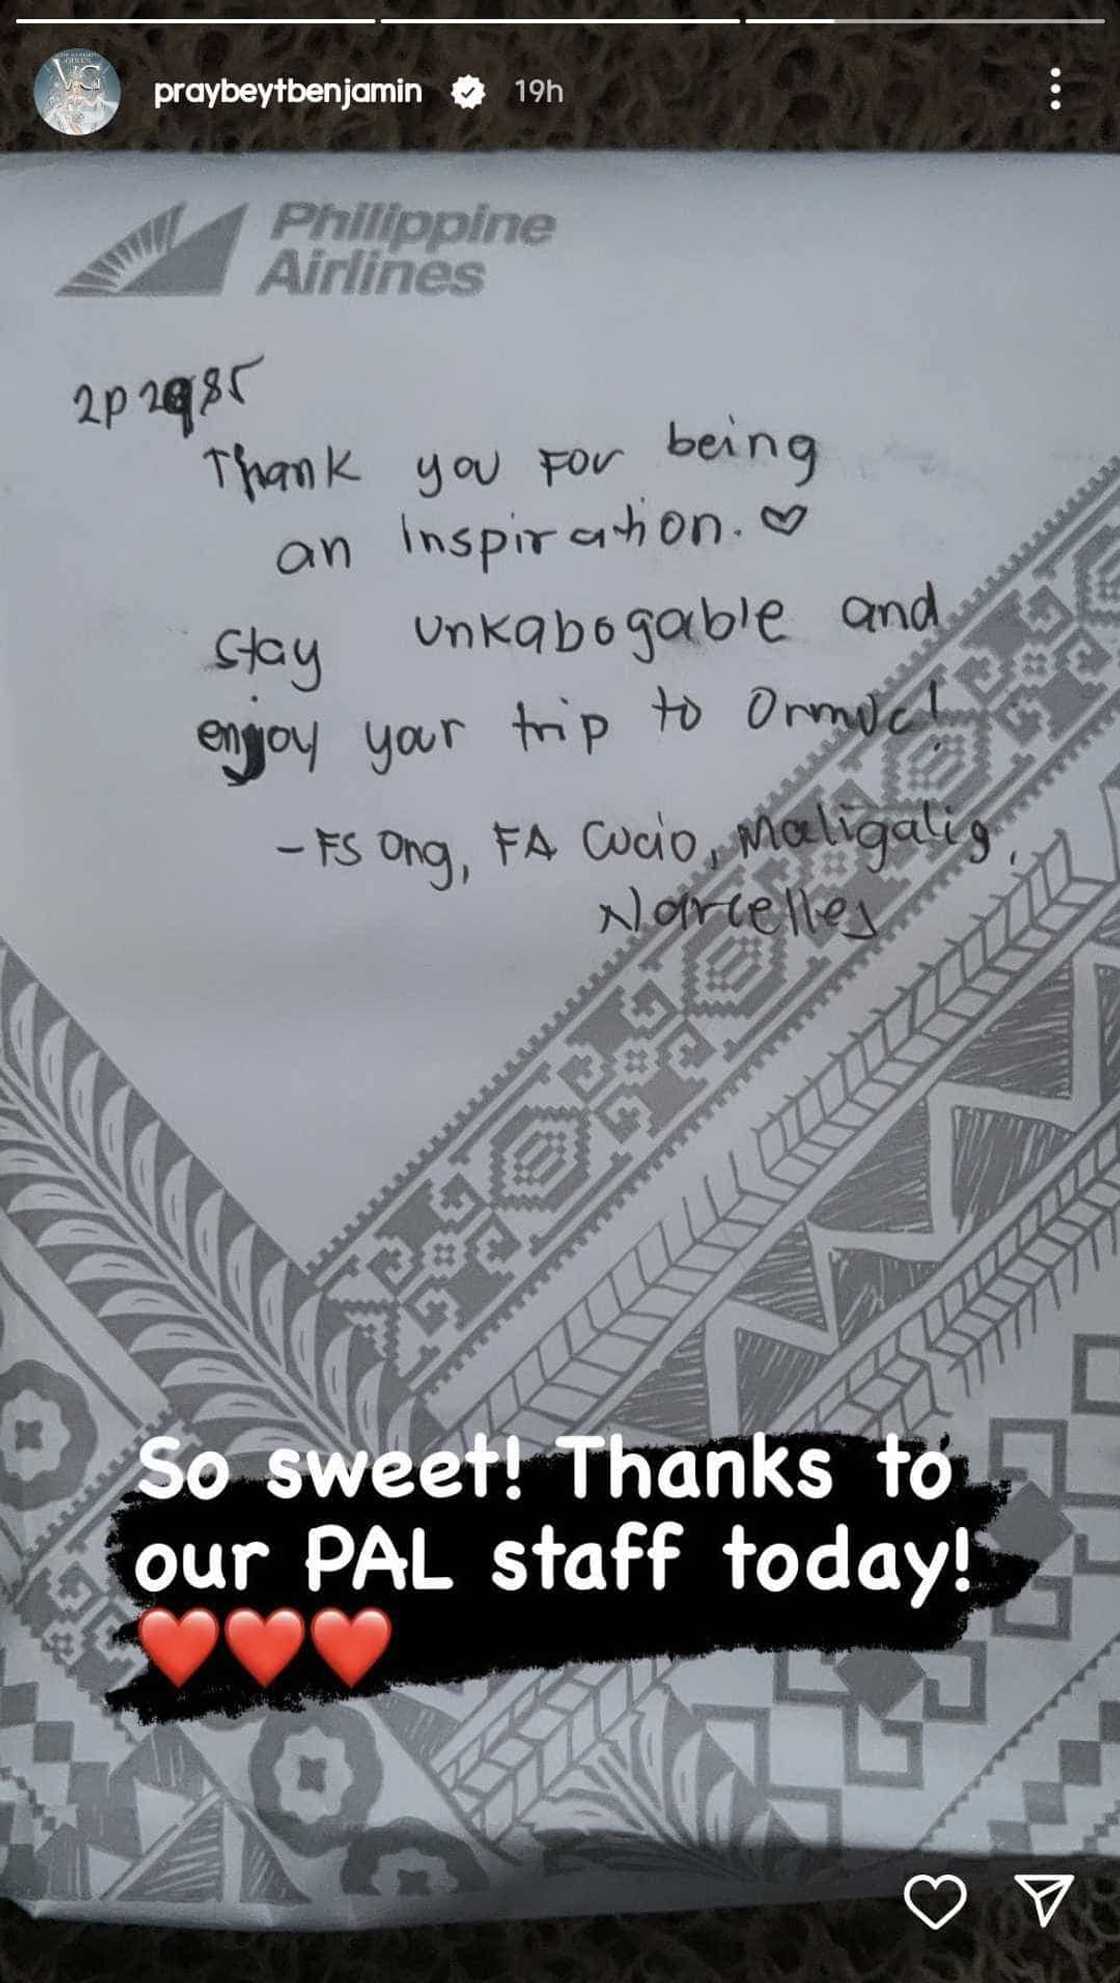 praybeytbenjamin 19h
Philippine
Airlines
2P 2985
Thank you For being
an Inspiration. ♡
Stay unkabogable and
enjoy your trip to Ormoc!
- FS Ong, FA Cucio, Maligalig,
Narcelles
So sweet! Thanks to
our PAL staff today!
❤️❤️❤️